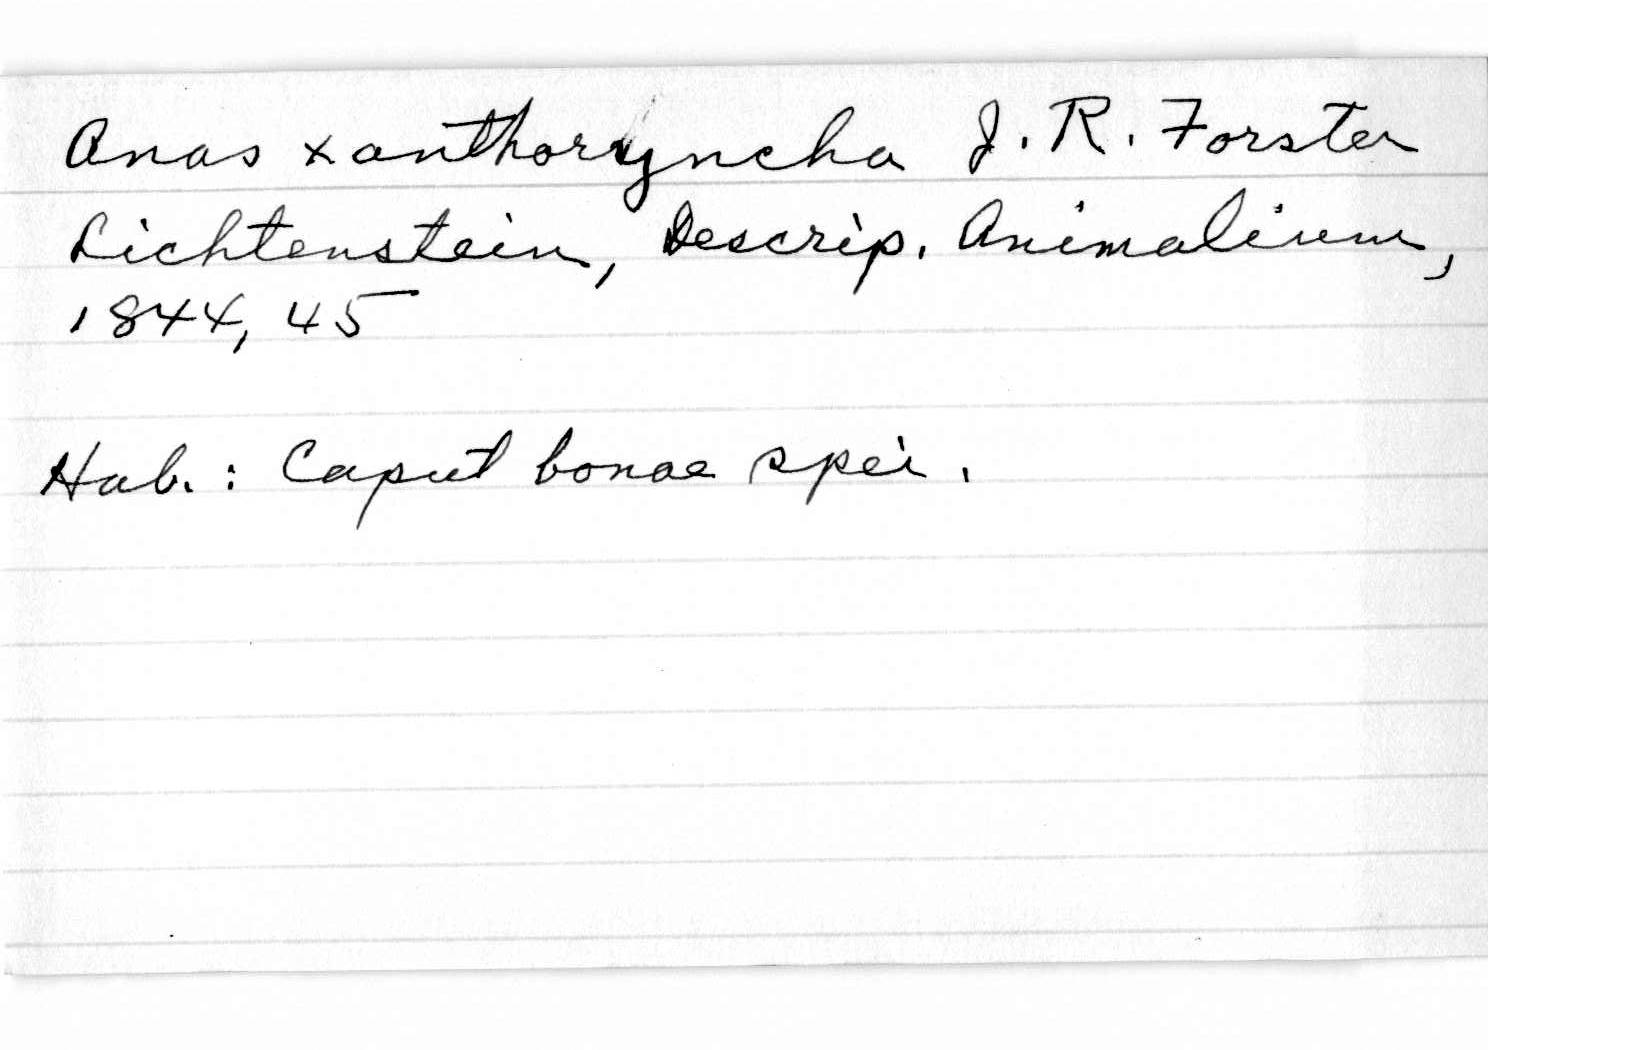 Anas xanthoryncha J. R. Forster
Lichtenstein, Descrip. Animalium,
1844, 45
Hab. : Caput bonae spei.